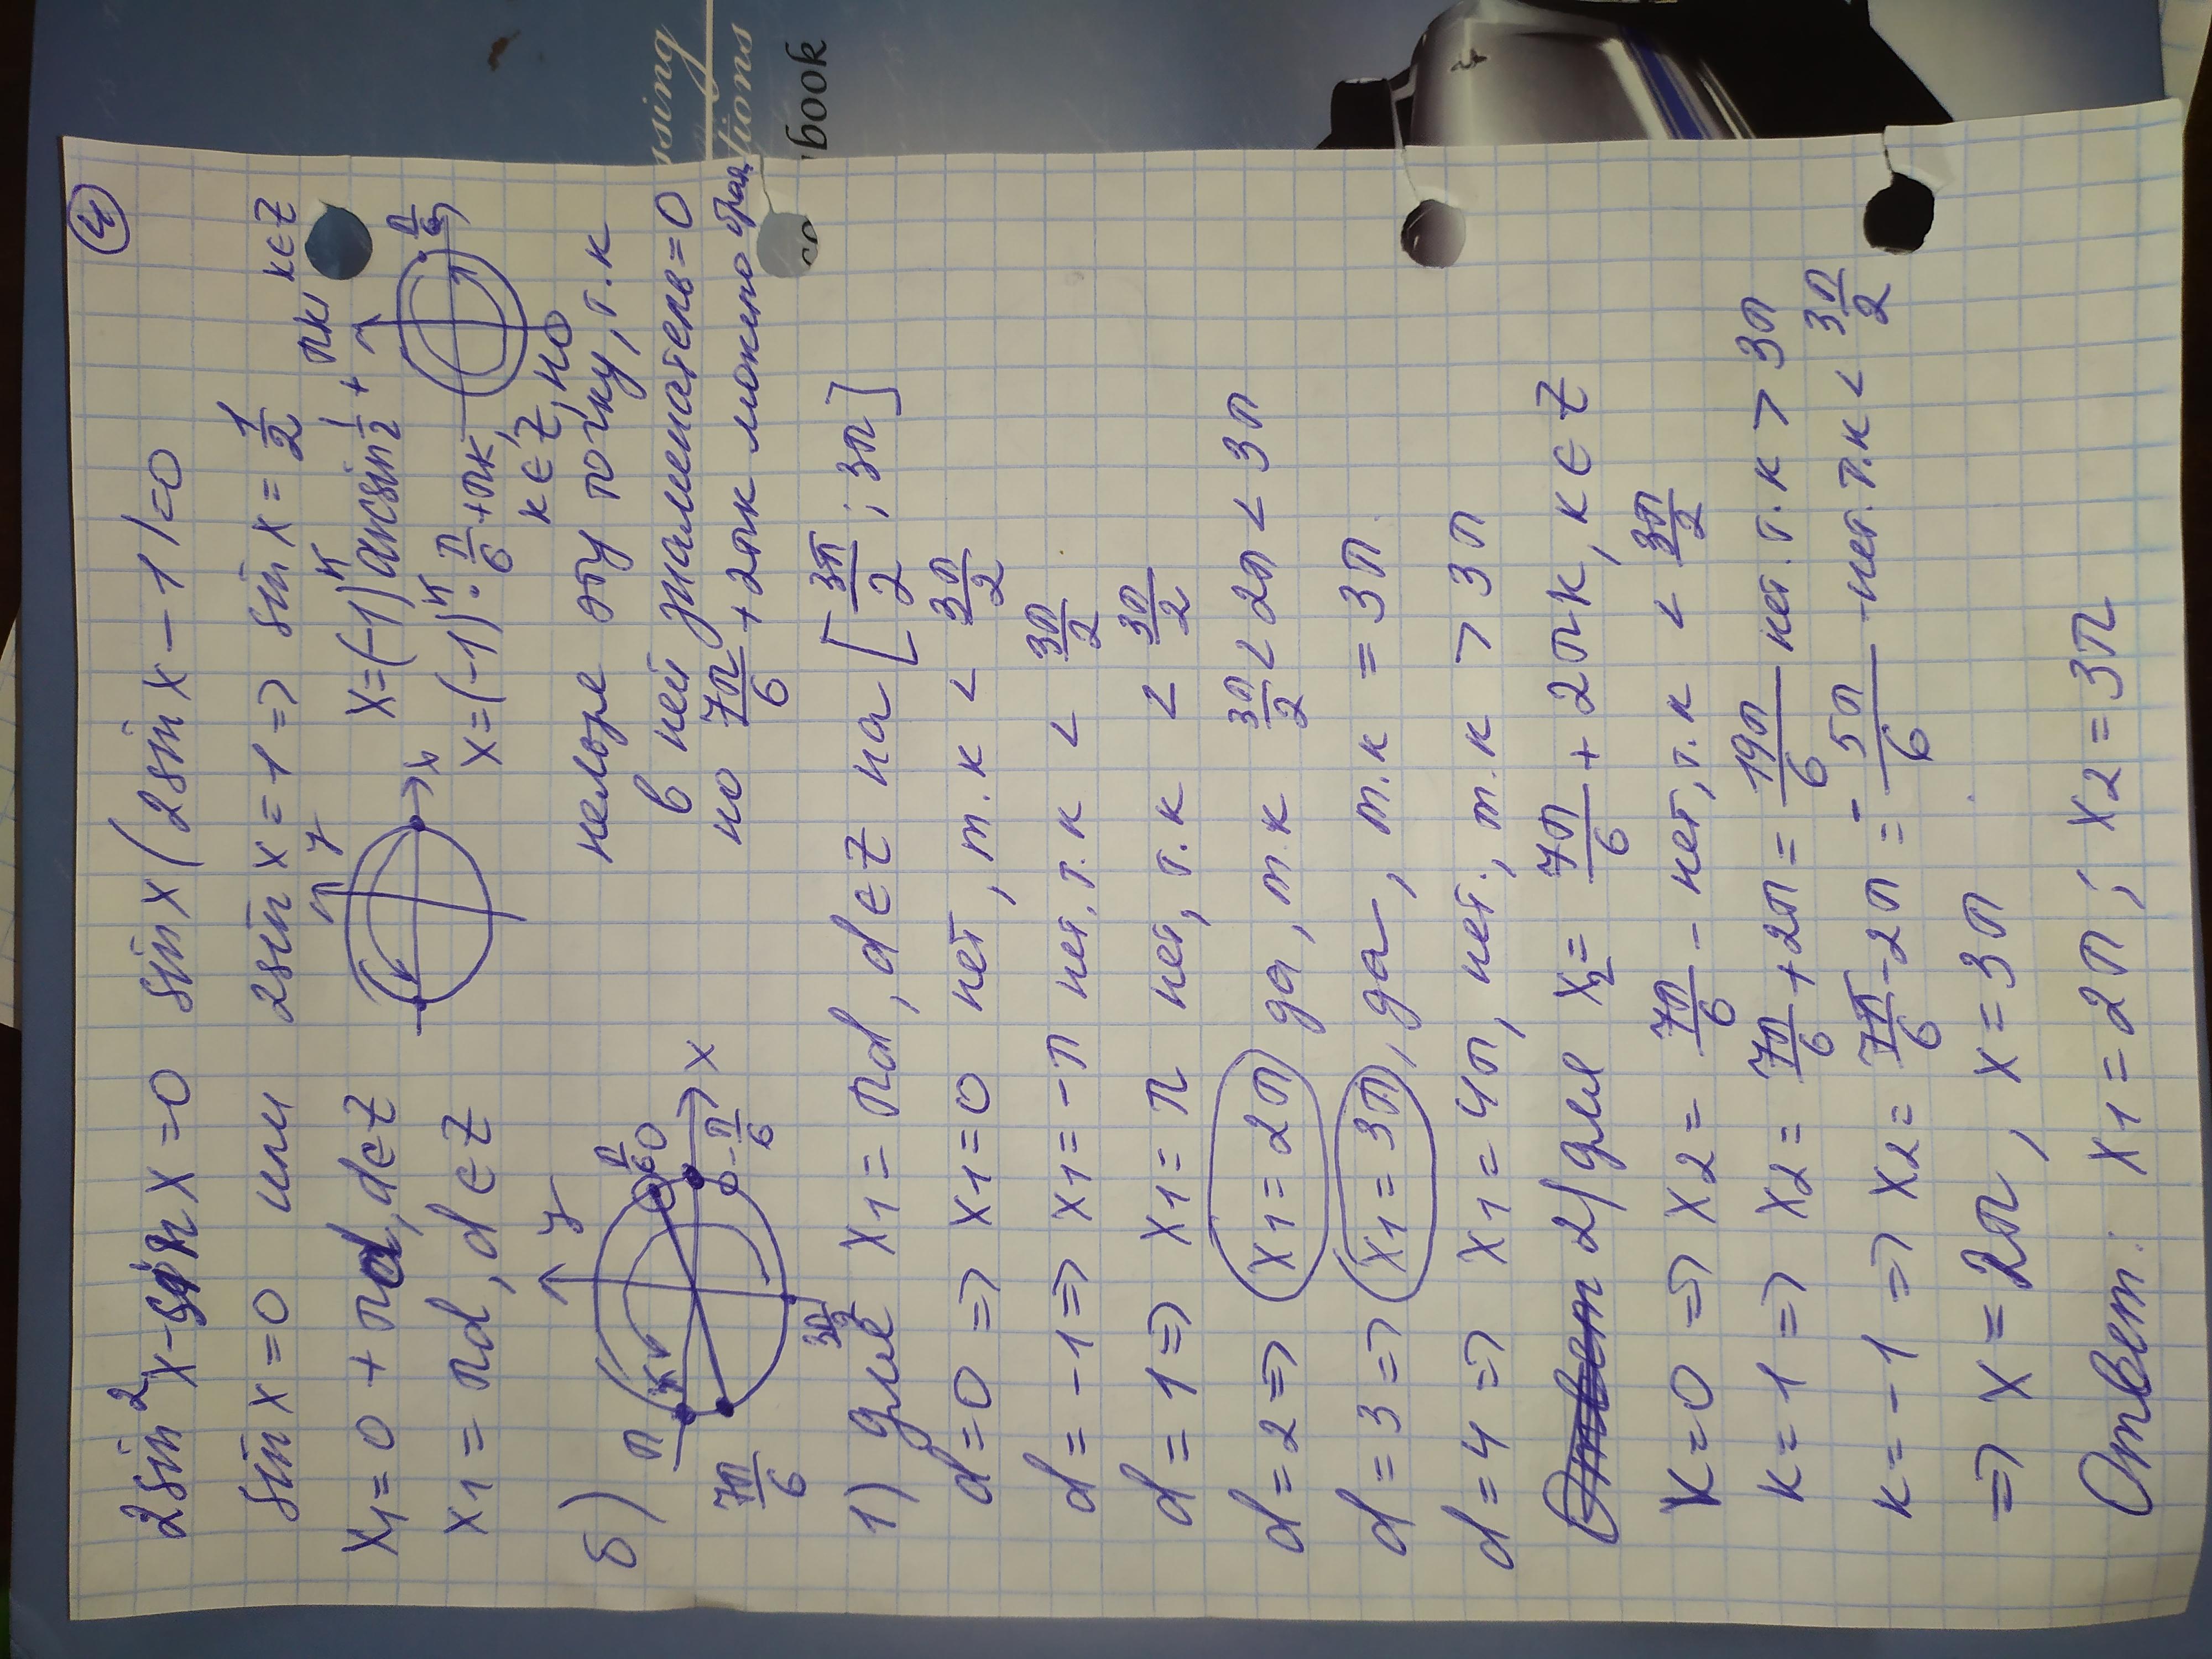 ④
2sin²x-sinx=0 sinx(2sinx-1)=0
sinx=0 или 2sinx=1 => sinx=1/2
x₁=0+πd, d∈Z y x x=(-1)ᵏarcsin 1/2+πk, k∈Z
x₁=πd, d∈Z x=(-1)ᵏ·π/6+πk, k∈Z, но
нельзя эту точку, т.к
в ней знаменатель=0
но 7π/6+2πk можно брать
б) y x π 7π/6 π/6 -π/6 0 3π/2
1) для x₁=πd, d∈Z на [3π/2; 3π]
d=0 => x₁=0 нет, т.к < 3π/2
d=-1 => x₁=-π нет, т.к < 3π/2
d=1 => x₁=π нет, т.к < 3π/2
d=2 => x₁=2π да, т.к 3π/2<2π<3π
d=3 => x₁=3π, да, т.к = 3π
d=4 => x₁=4π, нет, т.к > 3π
Ответ 2) для x₂=7π/6+2πk, k∈Z
k=0 => x₂=7π/6 - нет, т.к < 3π/2
k=1 => x₂=7π/6+2π=19π/6 нет. т.к > 3π
k=-1 => x₂=7π/6-2π=-5π/6 - нет. т.к < 3π/2
=> x=2π, x=3π
Ответ: x₁=2π; x₂=3π
ssing
tions
ybook